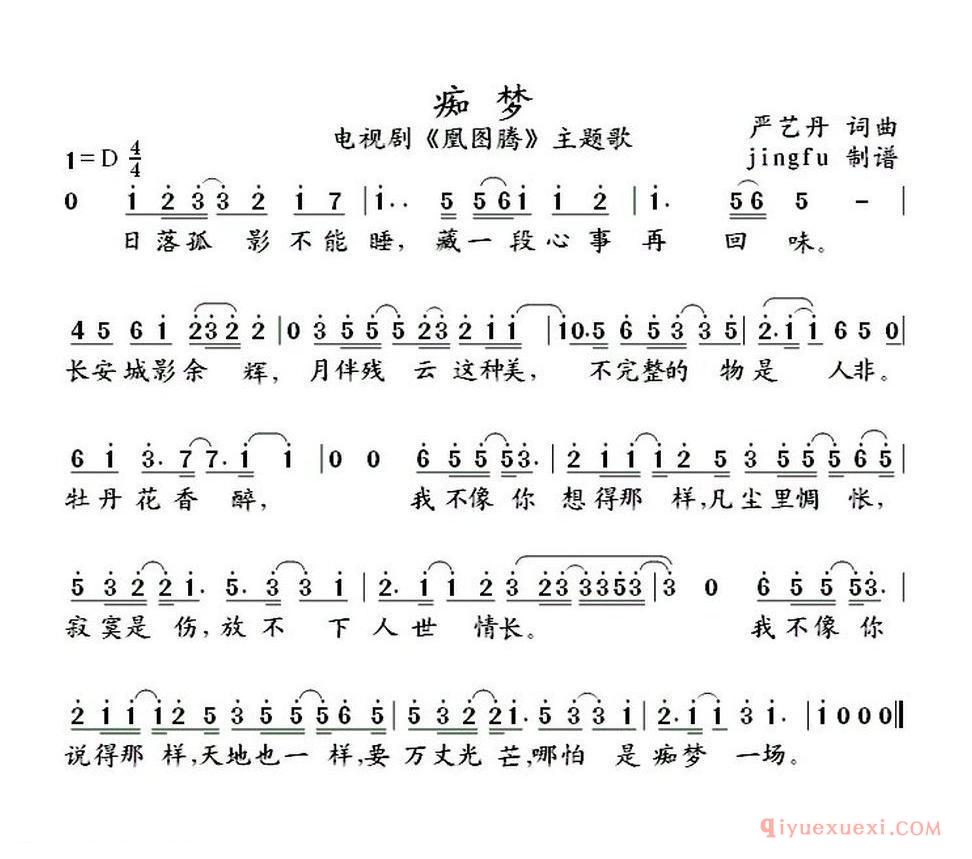 痴 梦
电视剧《凰图腾》主题歌
严艺丹 词曲
1=D 4/4
jingfu 制谱
0 1 2 3 3 2 1 7 | 1 . . 5 5 6 1 1 2 | 1 . 5 6 5 – |
日落孤 影不能睡, 藏一段心事再 回 味。
4 5 6 1 2 3 2 2 | 0 3 5 5 5 2 3 2 1 1 | 1 0 . 5 6 5 3 3 5 | 2 . 1 1 6 5 0 |
长安城影余 辉, 月伴残 云这种美, 不完整的 物是 人非。
6 1 3 . 7 7 . 1 1 | 0 0 6 5 5 5 3 . | 2 1 1 1 2 5 3 5 5 5 6 5 |
牡丹花香醉, 我不像你 想得那 样,凡尘里惆 怅,
5 3 2 2 1 . 5 . 3 3 1 | 2 . 1 1 2 3 2 3 3 3 5 3 | 3 0 6 5 5 5 3 . |
寂寞是 伤,放不 下人世 情长。 我不像 你
2 1 1 1 2 5 3 5 5 5 6 5 | 5 3 2 2 1 . 5 3 3 1 | 2 . 1 1 3 1 . | 1 0 0 0 ‖
说得那 样,天地也一 样,要 万丈光 芒,哪怕 是痴梦 一场。
qiyuexuexi.COM